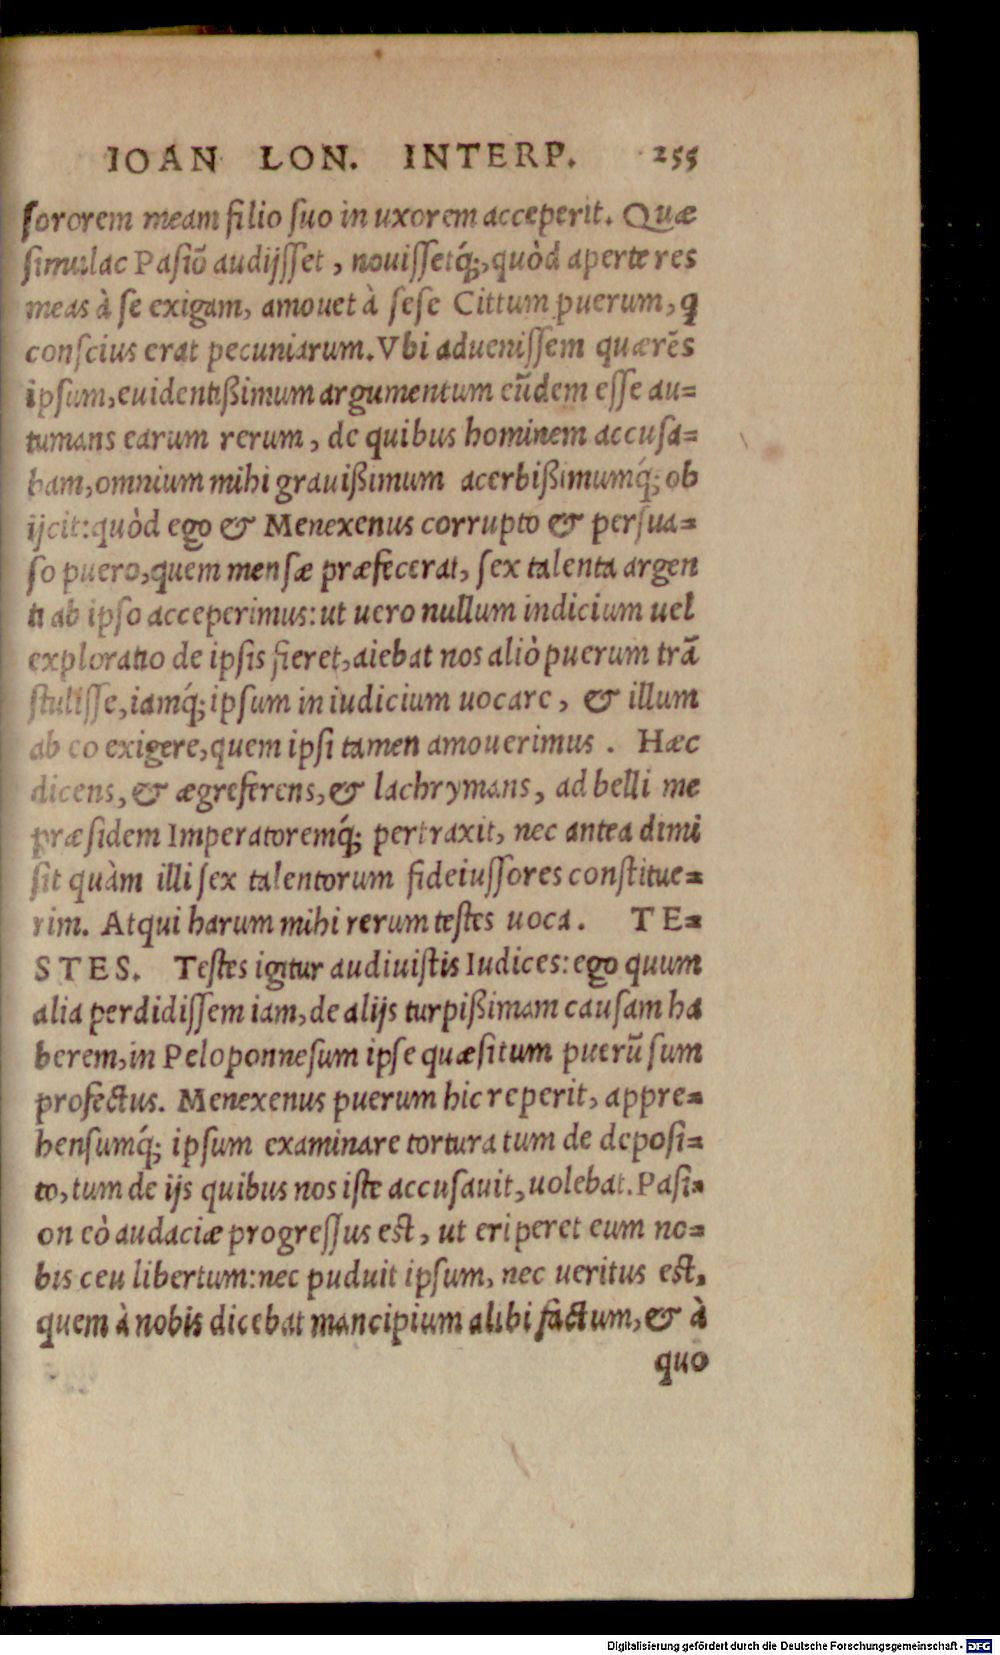 IOAN LON. INTERP. 255
sororem meam filio suo in uxorem acceperit. Quæ
simulac Pasiō audijsset, nouissetq́;, quòd aperte res
meas à se exigam, amouet à sese Cittum puerum, q
conscius erat pecuniarum. Vbi aduenissem quærēs
ipsum, euidentißimum argumentum eūdem esse au=
tumans earum rerum, de quibus hominem accusa=
bam, omnium mihi grauißimum acerbißimumq́; ob
ijcit: quòd ego & Menexenus corrupto & persua=
so puero, quem mensæ præfecerat, sex talenta argen
ti ab ipso acceperimus: ut uero nullum indicium uel
exploratio de ipsis fieret, aiebat nos aliò puerum trā
stulisse, iamq́; ipsum in iudicium uocare, & illum
ab eo exigere, quem ipsi tamen amouerimus. Hæc
dicens, & ægreferens, & lachrymans, ad belli me
præsidem Imperatoremq́; pertraxit, nec antea dimi
sit quàm illi sex talentorum fideiussores constitue=
rim. Atqui harum mihi rerum testes uoca. TE=
STES. Testes igitur audiuistis Iudices: ego quum
alia perdidissem iam, de alijs turpißimam causam ha
berem, in Peloponnesum ipse quæsitum puerū sum
profectus. Menexenus puerum hic reperit, appre=
hensumq́; ipsum examinare tortura tum de deposi=
to, tum de ijs quibus nos iste accusauit, uolebat. Pasi=
on eò audaciæ progressus est, ut eriperet eum no=
bis ceu libertum: nec puduit ipsum, nec ueritus est,
quem à nobis dicebat mancipium alibi factum, & à
quo
Digitalisierung gefördert durch die Deutsche Forschungsgemeinschaft - DFG